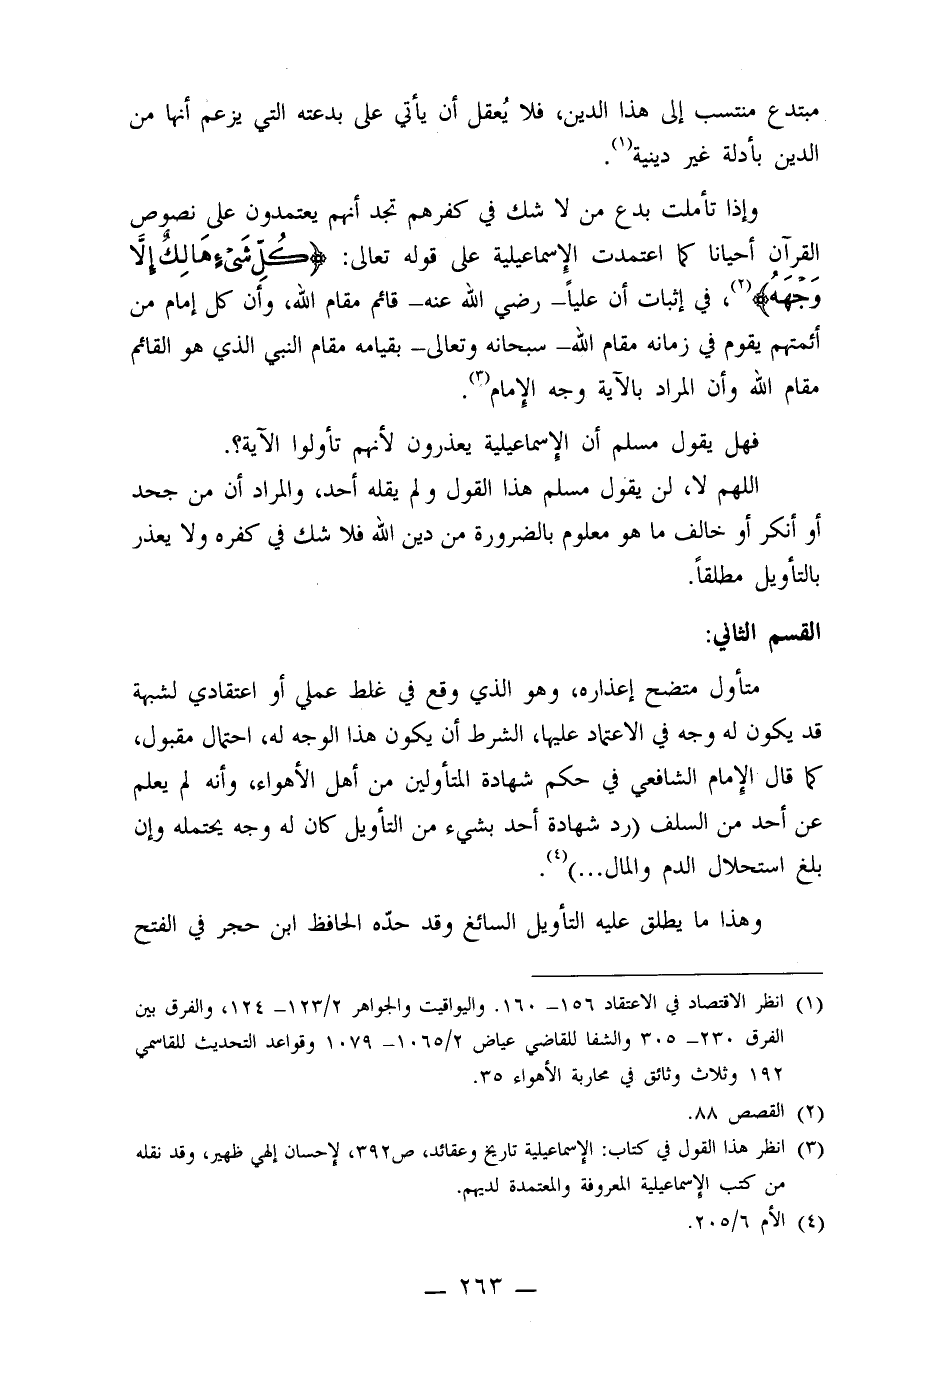 مبتدع منتسب إلى هذا الدين، فلا يُعقل أن يأتي على بدعته التي يزعم أنها من
الدين بأدلة غير دينية(١).
وإذا تأملت بدع من لا شك في كفرهم تجد أنهم يعتمدون على نصوص
القرآن أحيانا كما اعتمدت الإسماعيلية على قوله تعالى: ﴿كُلُّ شَىْءٍ هَالِكٌ إِلَّا
وَجْهَهُ﴾(٢)، في إثبات أن علياً– رضي الله عنه– قائم مقام الله، وأن كل إمام من
أئمتهم يقوم في زمانه مقام الله– سبحانه وتعالى– بقيامه مقام النبي الذي هو القائم
مقام الله وأن المراد بالآية وجه الإمام(٣).
فهل يقول مسلم أن الإسماعيلية يعذرون لأنهم تأولوا الآية؟.
اللهم لا، لن يقول مسلم هذا القول ولم يقله أحد، والمراد أن من جحد
أو أنكر أو خالف ما هو معلوم بالضرورة من دين الله فلا شك في كفره ولا يعذر
بالتأويل مطلقاً.
القسم الثاني:
متأول متضح إعذاره، وهو الذي وقع في غلط عملي أو اعتقادي لشبهة
قد يكون له وجه في الاعتماد عليها، الشرط أن يكون هذا الوجه له، احتمال مقبول،
كما قال الإمام الشافعي في حكم شهادة المتأولين من أهل الأهواء، وأنه لم يعلم
عن أحد من السلف (رد شهادة أحد بشيء من التأويل كان له وجه يحتمله وإن
بلغ استحلال الدم والمال...)(٤).
وهذا ما يطلق عليه التأويل السائغ وقد حدّه الحافظ ابن حجر في الفتح
(١) انظر الاقتصاد في الاعتقاد ١٥٦– ١٦٠. واليواقيت والجواهر ١٢٣/٢– ١٢٤، والفرق بين
الفرق ٢٣٠– ٣٠٥ والشفا للقاضي عياض ١٠٦٥/٢– ١٠٧٩ وقواعد التحديث للقاسمي
١٩٢ وثلاث وثائق في محاربة الأهواء ٣٥.
(٢) القصص ٨٨.
(٣) انظر هذا القول في كتاب: الإسماعيلية تاريخ وعقائد، ص٣٩٢، لإحسان إلهي ظهير، وقد نقله
من كتب الإسماعيلية المعروفة والمعتمدة لديهم.
(٤) الأم ٢٠٥/٦.
— ٢٦٣ —